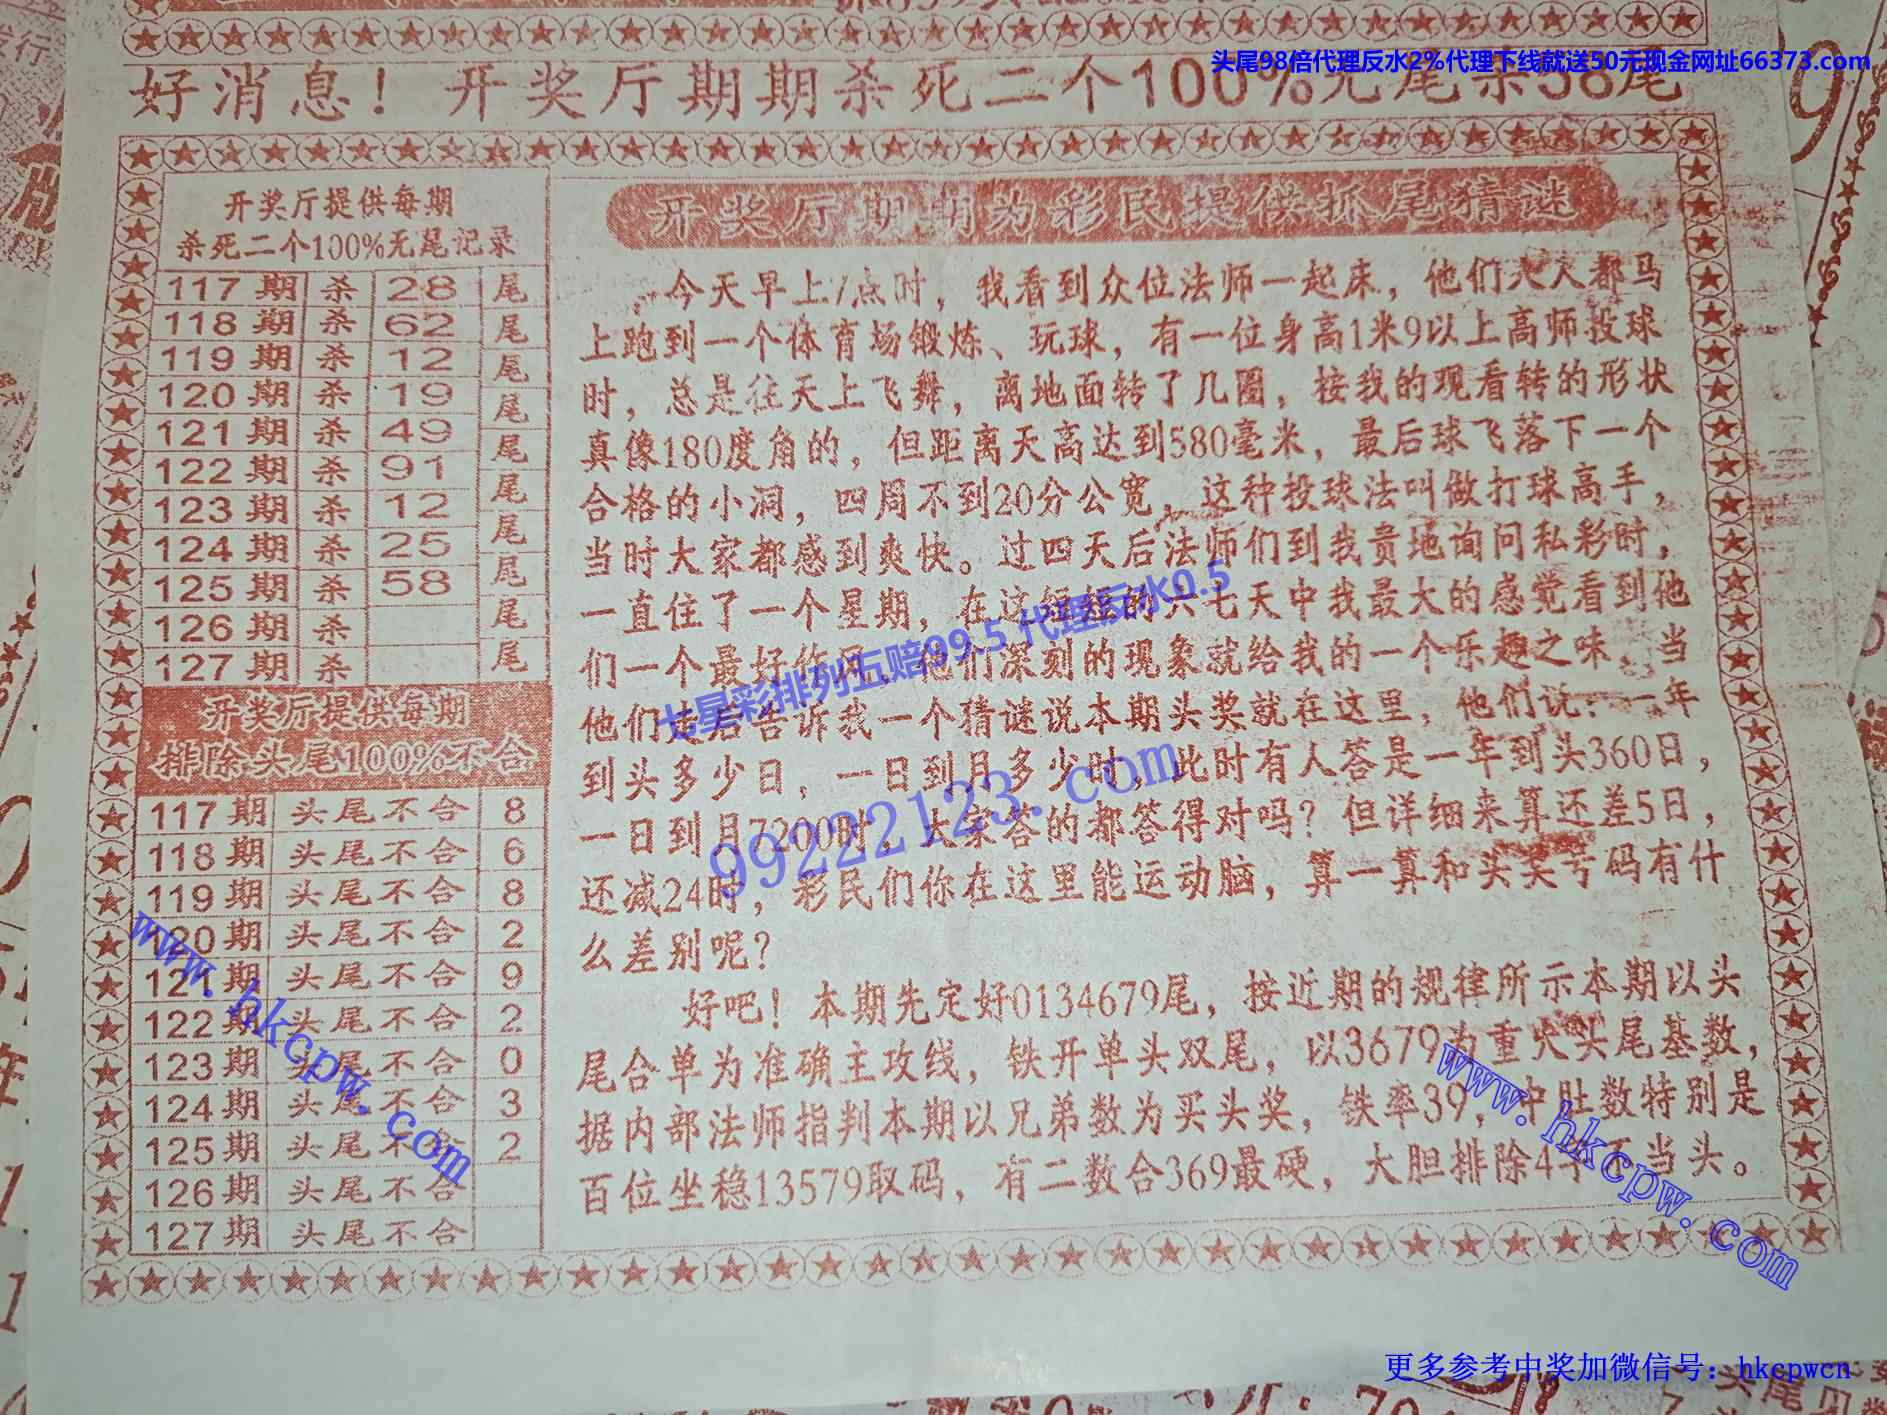 头尾98倍代理反水2%代理下线就送50元现金网址66373.com
好消息！开奖厅期期杀死二个100%无尾杀58尾
开奖厅提供每期
杀死二个100%无尾记录
117期 杀 28 尾
118期 杀 62 尾
119期 杀 12 尾
120期 杀 19 尾
121期 杀 49 尾
122期 杀 91 尾
123期 杀 12 尾
124期 杀 25 尾
125期 杀 58 尾
126期 杀 尾
127期 杀 尾
开奖厅提供每期
排除头尾100%不合
117期 头尾不合 8
118期 头尾不合 6
119期 头尾不合 8
120期 头尾不合 2
121期 头尾不合 9
122期 头尾不合 2
123期 头尾不合 0
124期 头尾不合 3
125期 头尾不合 2
126期 头尾不合
127期 头尾不合
开奖厅期期为彩民提供抓尾猜谜
今天早上7点时，我看到众位法师一起床，他们大人都马
上跑到一个体育场锻炼、玩球，有一位身高1米9以上高师投球
时，总是往天上飞舞，离地面转了几圈，按我的观看转的形状
真像180度角的，但距离天高达到580毫米，最后球飞落下一个
合格的小洞，四周不到20分公宽，这种投球法叫做打球高手，
当时大家都感到爽快。过四天后法师们到我贵地询问私彩时，
一直住了一个星期，在这短短的六七天中我最大的感觉看到他
们一个最好作风，他们深刻的现象就给我的一个乐趣之味，当
他们走后告诉我一个猜谜说本期头奖就在这里，他们说：一年
到头多少日，一日到月多少时，此时有人答是一年到头360日，
一日到月7200时，大家答的都答得对吗？但详细来算还差5日，
还减24时，彩民们你在这里能运动脑，算一算和头奖号码有什
么差别呢？
好吧！本期先定好0134679尾，按近期的规律所示本期以头
尾合单为准确主攻线，铁开单头双尾，以3679为重火头尾基数，
据内部法师指判本期以兄弟数为买头奖，铁率39，中肚数特别是
百位坐稳13579取码，有二数合369最硬，大胆排除4字不当头。
七星彩排列五赔99.5 代理反水0.5
99222123.com
www.hkcpw.com
www.hkcpw.com
更多参考中奖加微信号：hkcpwcn